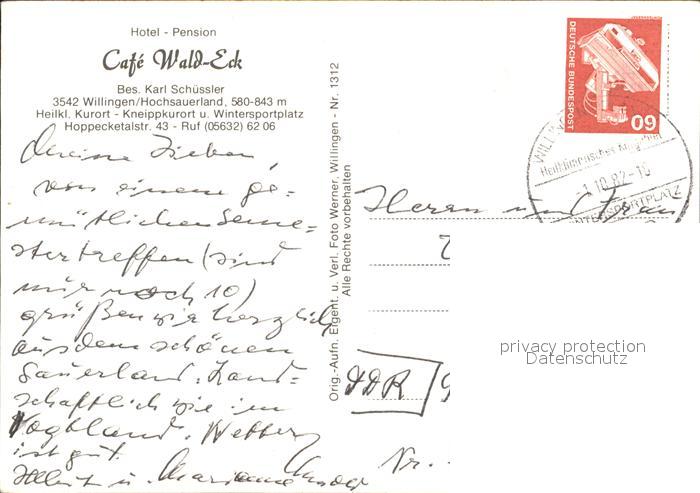 Hotel - Pension
Café Wald-Eck
Bes. Karl Schüssler
3542 Willingen/Hochsauerland, 580-843 m
Heilkl. Kurort - Kneippkurort u. Wintersportplatz
Hoppecketalstr. 43 - Ruf (05632) 62 06
Meine Lieben,
von einem ge-
mütlichen Seme-
stertreffen (sind
nur noch 10)
grüßen wir herzlich
aus dem schönen
Sauerland. Land-
schaftlich wie im
Vogtland. Wetter
ist gut.
Helmut u. Marianne
Orig.-Aufn. Eigent. u. Verl. Foto Werner, Willingen - Nr. 1312
Alle Rechte vorbehalten
DEUTSCHE BUNDESPOST
60
WILLIN
Heilklimatisches
-1.10.82-10
WINTERSPORTPLATZ
Herrn und Frau
DDR
Nr.
privacy protection
Datenschutz